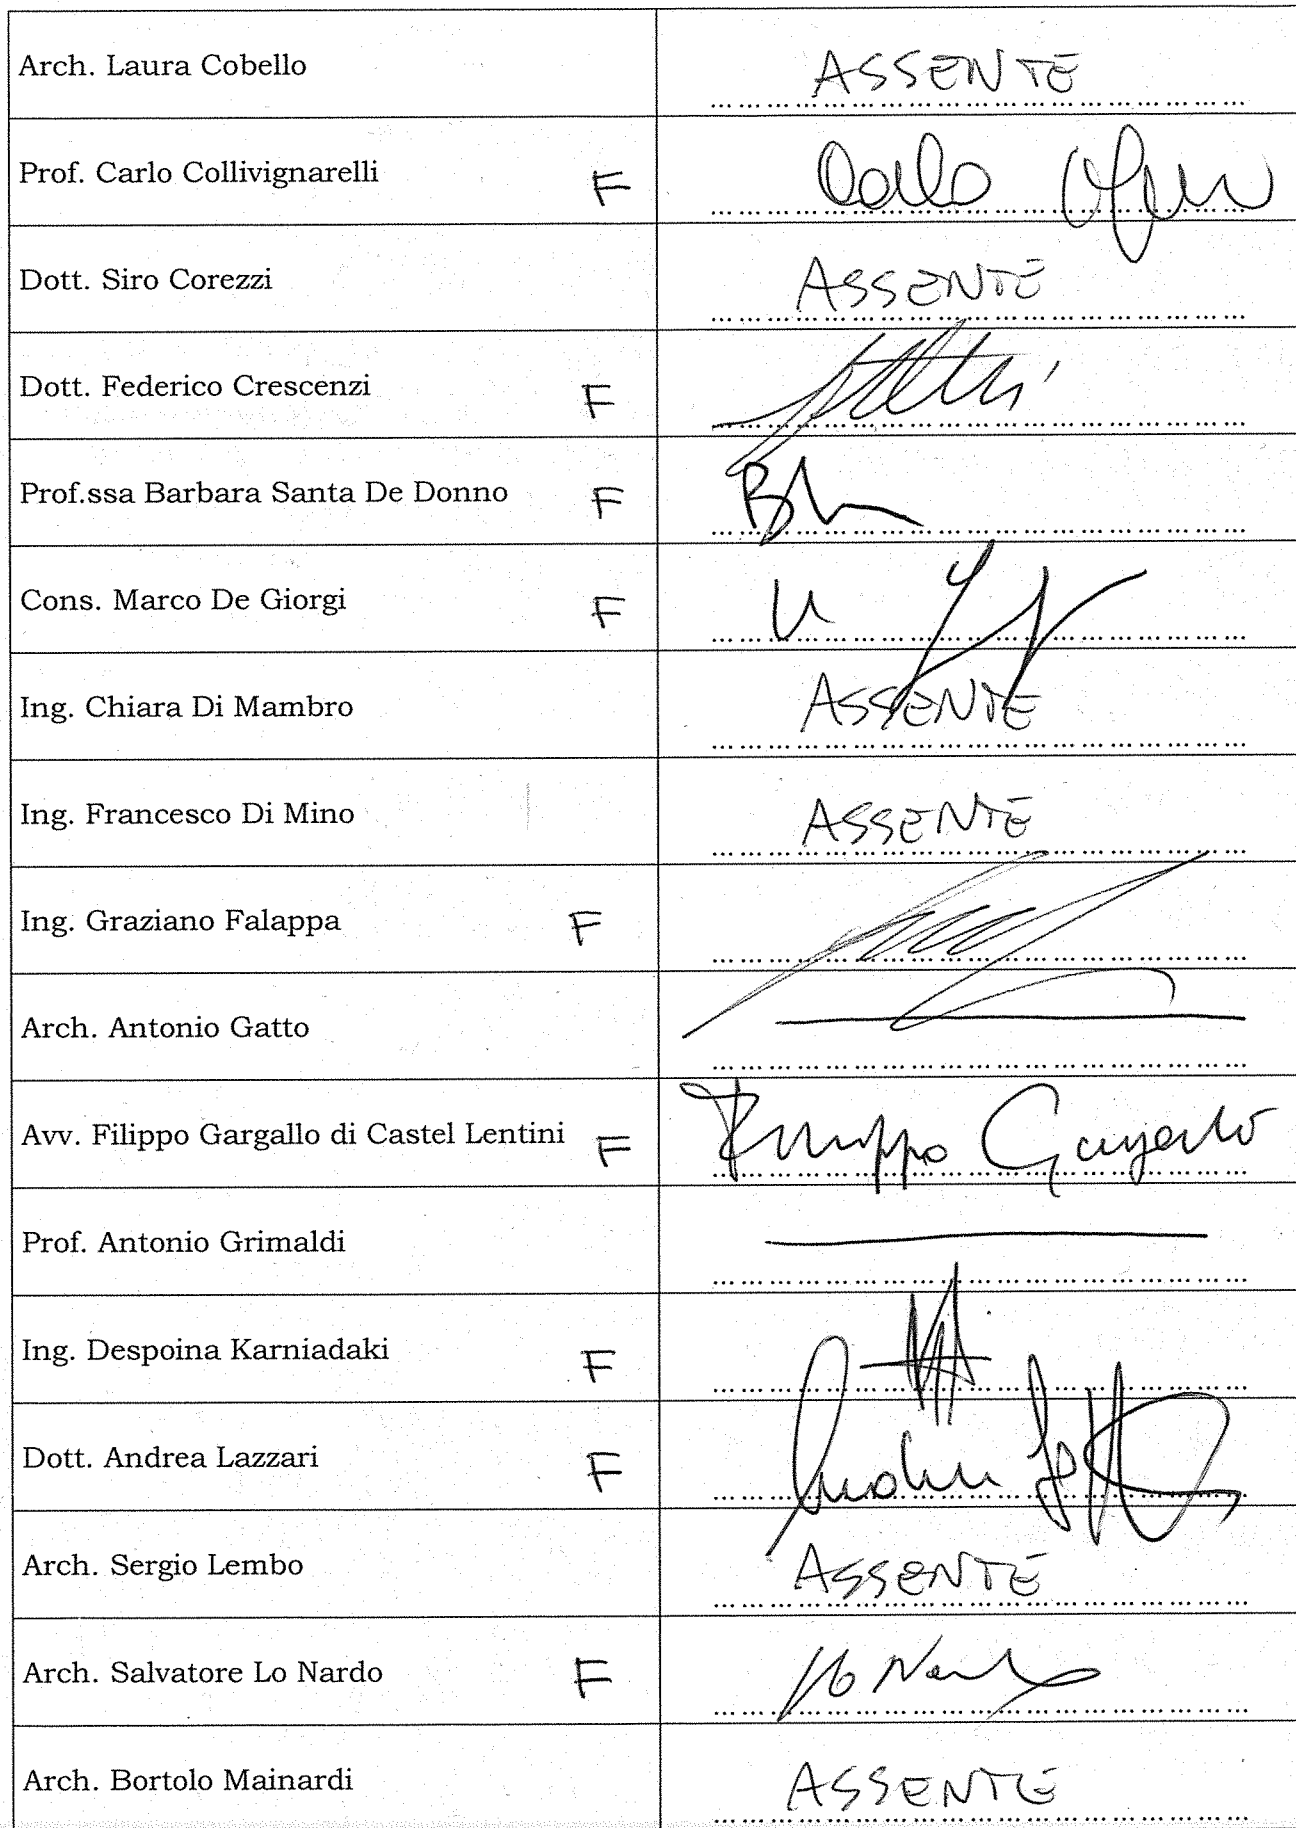 Arch. Laura Cobello ASSENTE
Prof. Carlo Collivignarelli F Carlo
Dott. Siro Corezzi ASSENTE
Dott. Federico Crescenzi F
Prof.ssa Barbara Santa De Donno F
Cons. Marco De Giorgi F
Ing. Chiara Di Mambro ASSENTE
Ing. Francesco Di Mino ASSENTE
Ing. Graziano Falappa F
Arch. Antonio Gatto
Avv. Filippo Gargallo di Castel Lentini F Filippo Gargallo
Prof. Antonio Grimaldi
Ing. Despoina Karniadaki F
Dott. Andrea Lazzari F Andrea
Arch. Sergio Lembo ASSENTE
Arch. Salvatore Lo Nardo F Lo Nardo
Arch. Bortolo Mainardi ASSENTE